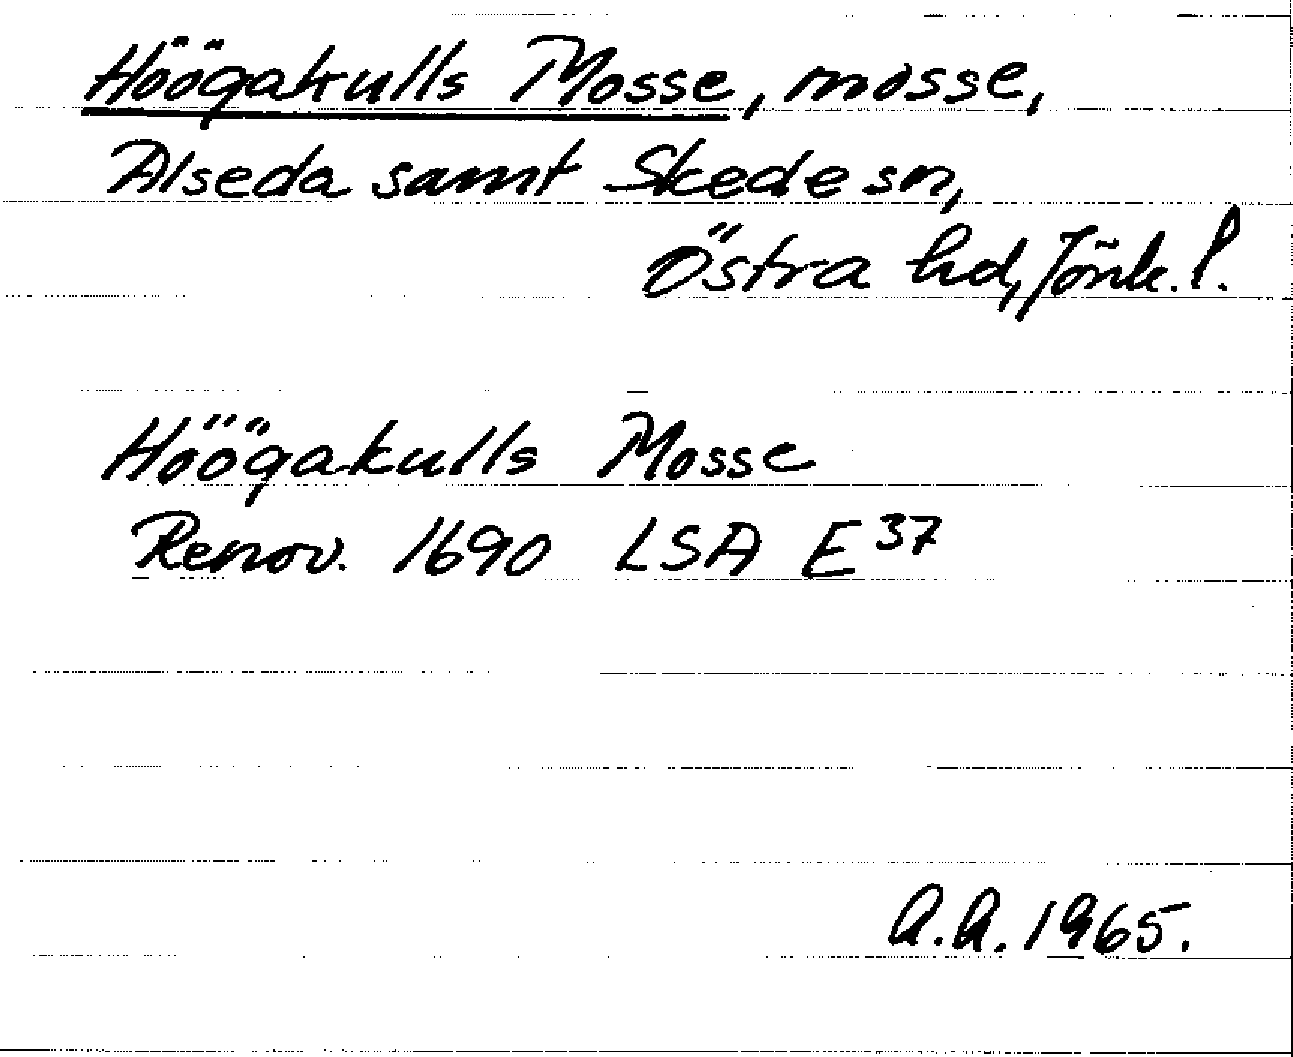 Höögakulls Mosse, mosse,
Alseda samt Skede sn,
Östra hd, Jönk. l.
Höögakulls Mosse
Renov. 1690 LSA E37
A.A. 1965.